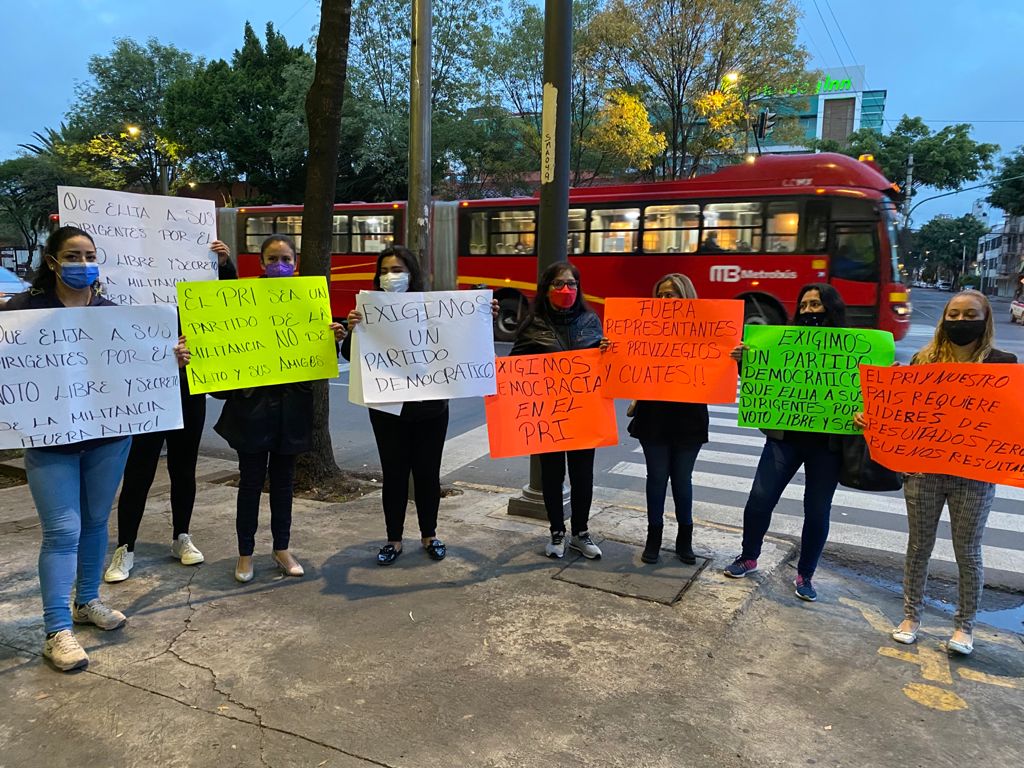 QUE ELIJA A SUS
DIRIGENTES POR EL
VOTO LIBRE Y SECRETO
QUE ELIJA A SUS
DIRIGENTES POR EL
VOTO LIBRE Y SECRETO
DE LA MILITANCIA
FUERA ALITO!
EL PRI SEA UN
PARTIDO DE LA
MILITANCIA NO DE
ALITO Y SUS AMIGOS
EXIGIMOS
UN
PARTIDO
DEMOCRÁTICO
EXIGIMOS
DEMOCRACIA
EN EL
PRI
FUERA
REPRESENTANTES
DE PRIVILEGIOS
Y CUATES!!
EXIGIMOS
UN PARTIDO
DEMOCRÁTICO
QUE ELIJA A SUS
DIRIGENTES POR
VOTO LIBRE Y
EL PRI Y NUESTRO
PAIS REQUIERE
LIDERES DE
RESULTADOS PERO
BUENOS
MB Metrobús
Inn